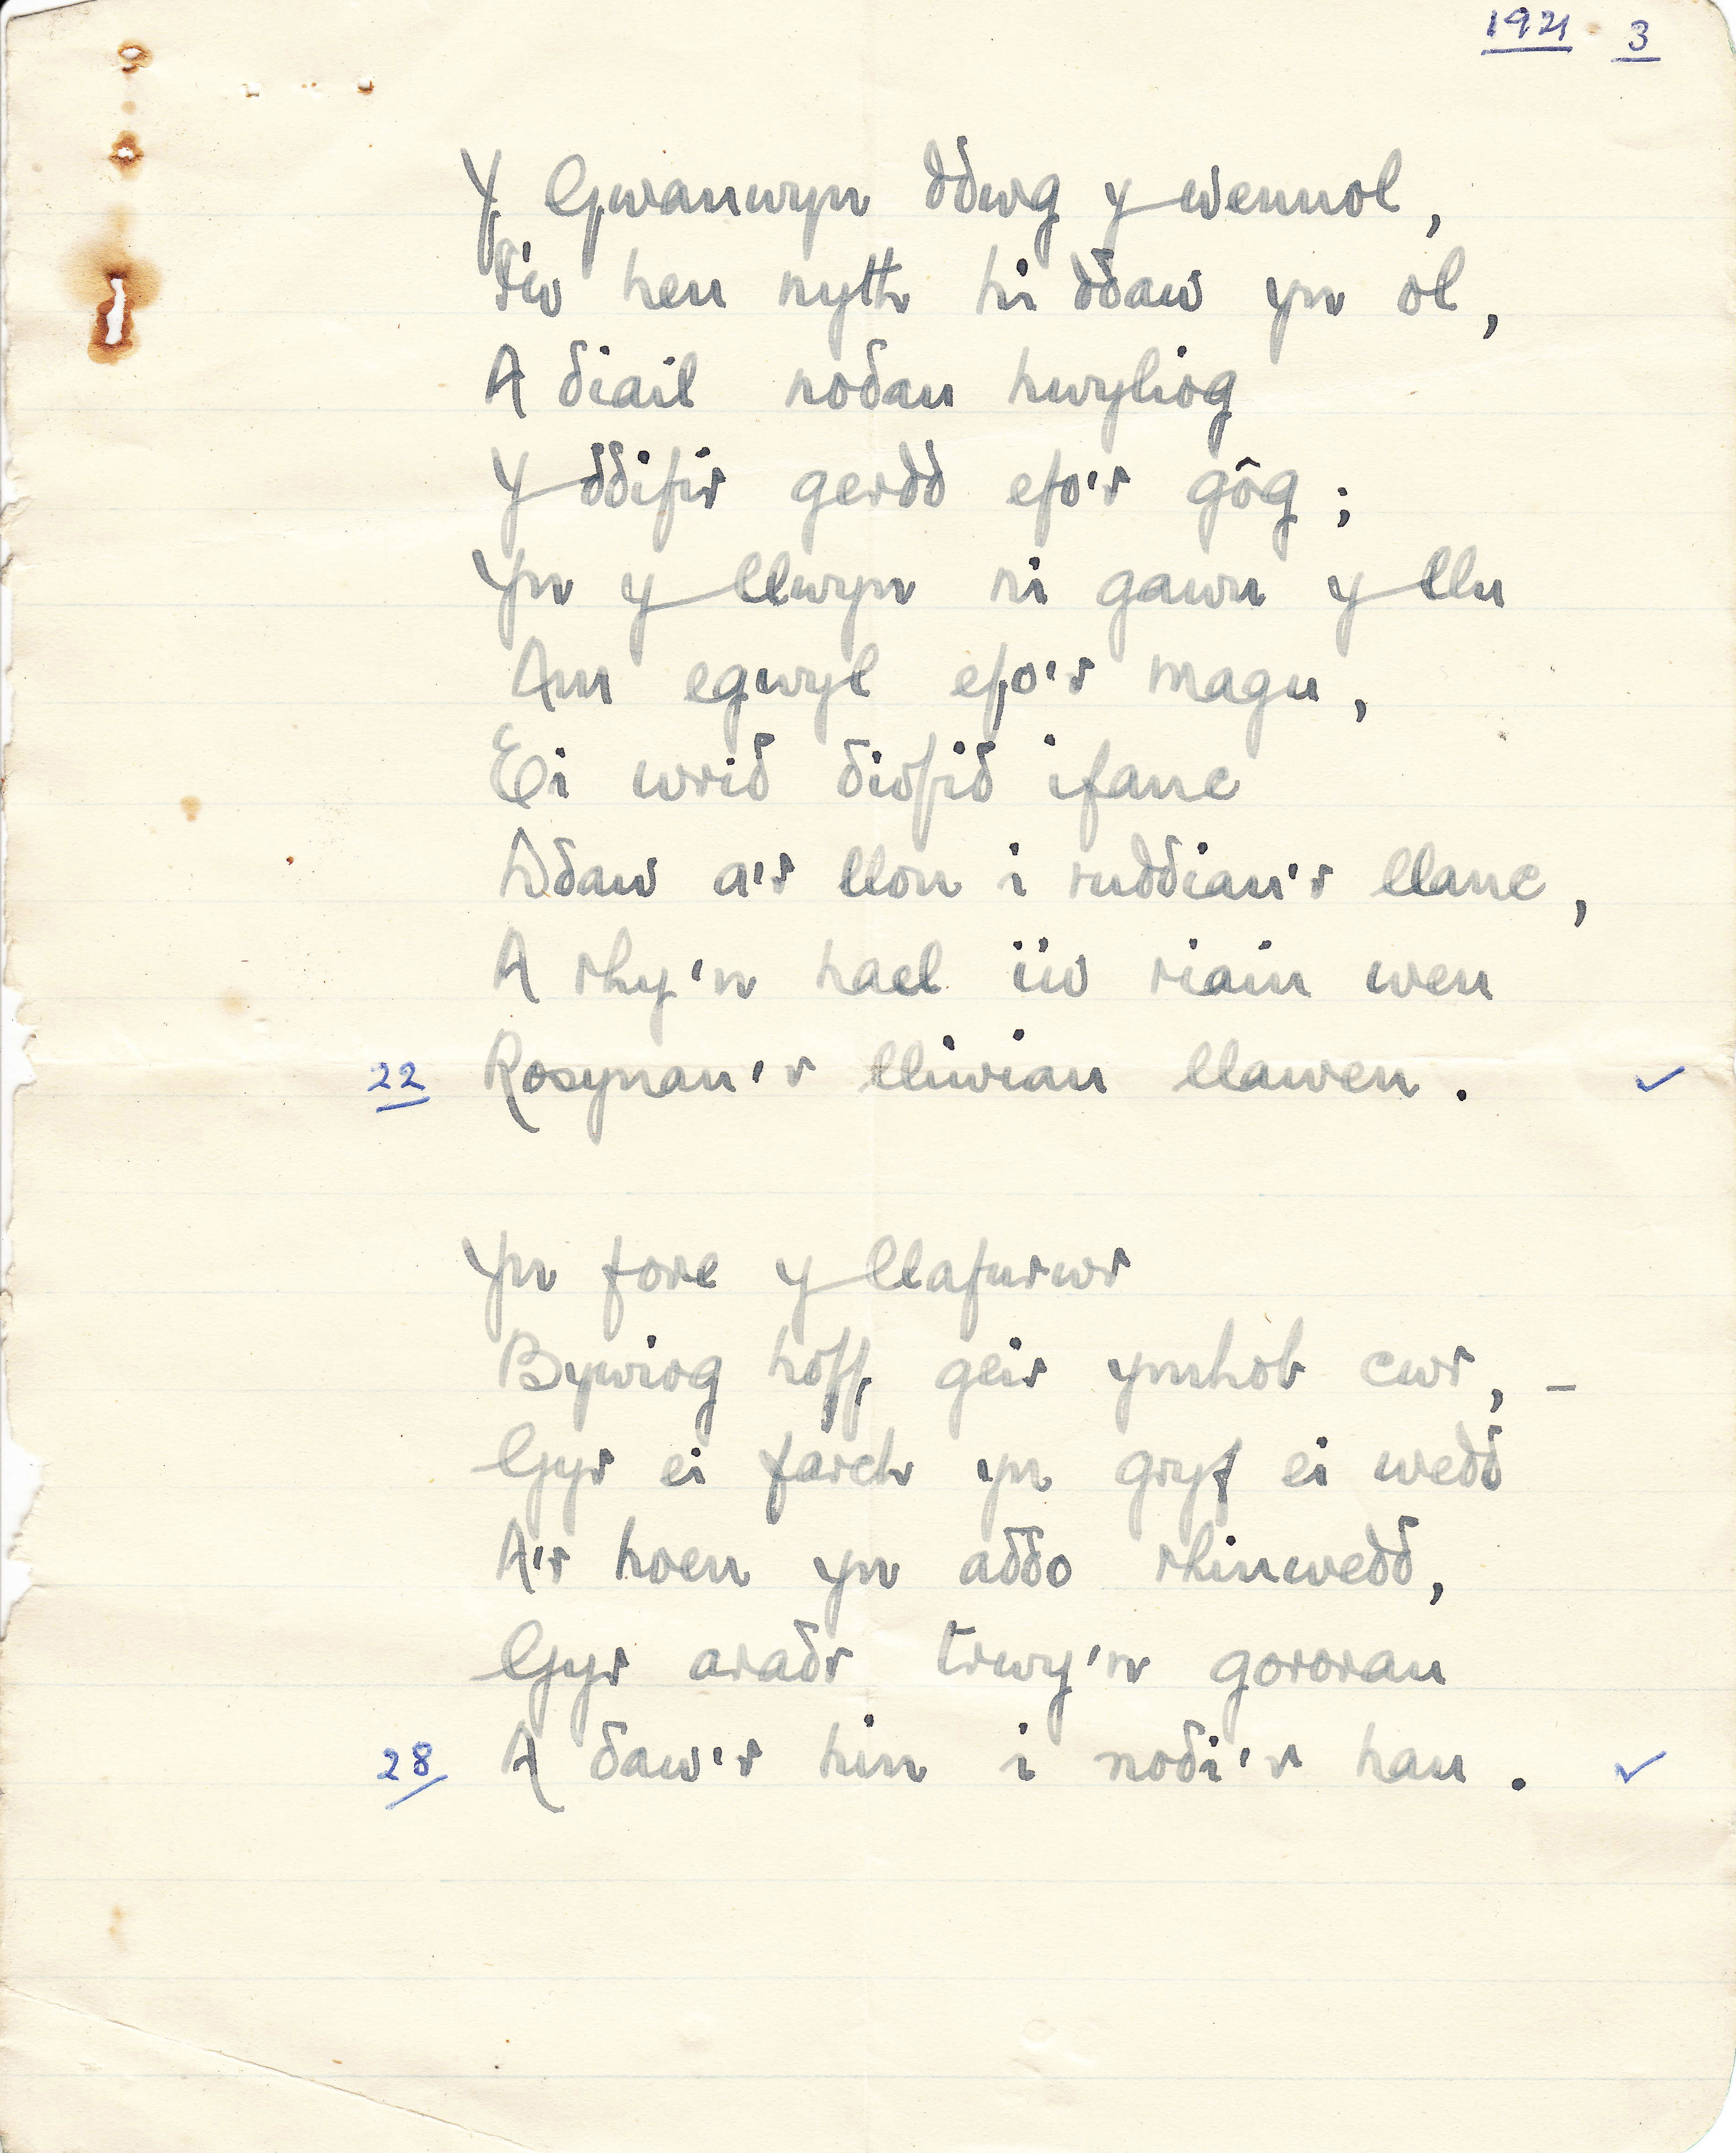 1921 3
Y Gwanwyn ddwg y wennol,
I'w hen nyth hi ddaw yn ol,
A diail nodau hwyliog
Y ddifir gerdd efo'r gôg;
Yn y llwyn ni gawn y llu
Am egwyl efo'r magu,
Ei wrid diofid ifanc
Ddaw a'r llon i ruddiau'r llanc,
A rhy'n hael i'w riain wen
22 Rosynau'r lliwiau llawen.
Yn fore y llafurwr
Bywiog hoff geir ymhob cwr, –
Gyr ei farch yn gryf ei wedd
A'r hoen yn addo rhinwedd,
Gyr aradr trwy'n gororau
28 A daw'r hin i nodi'r hau.